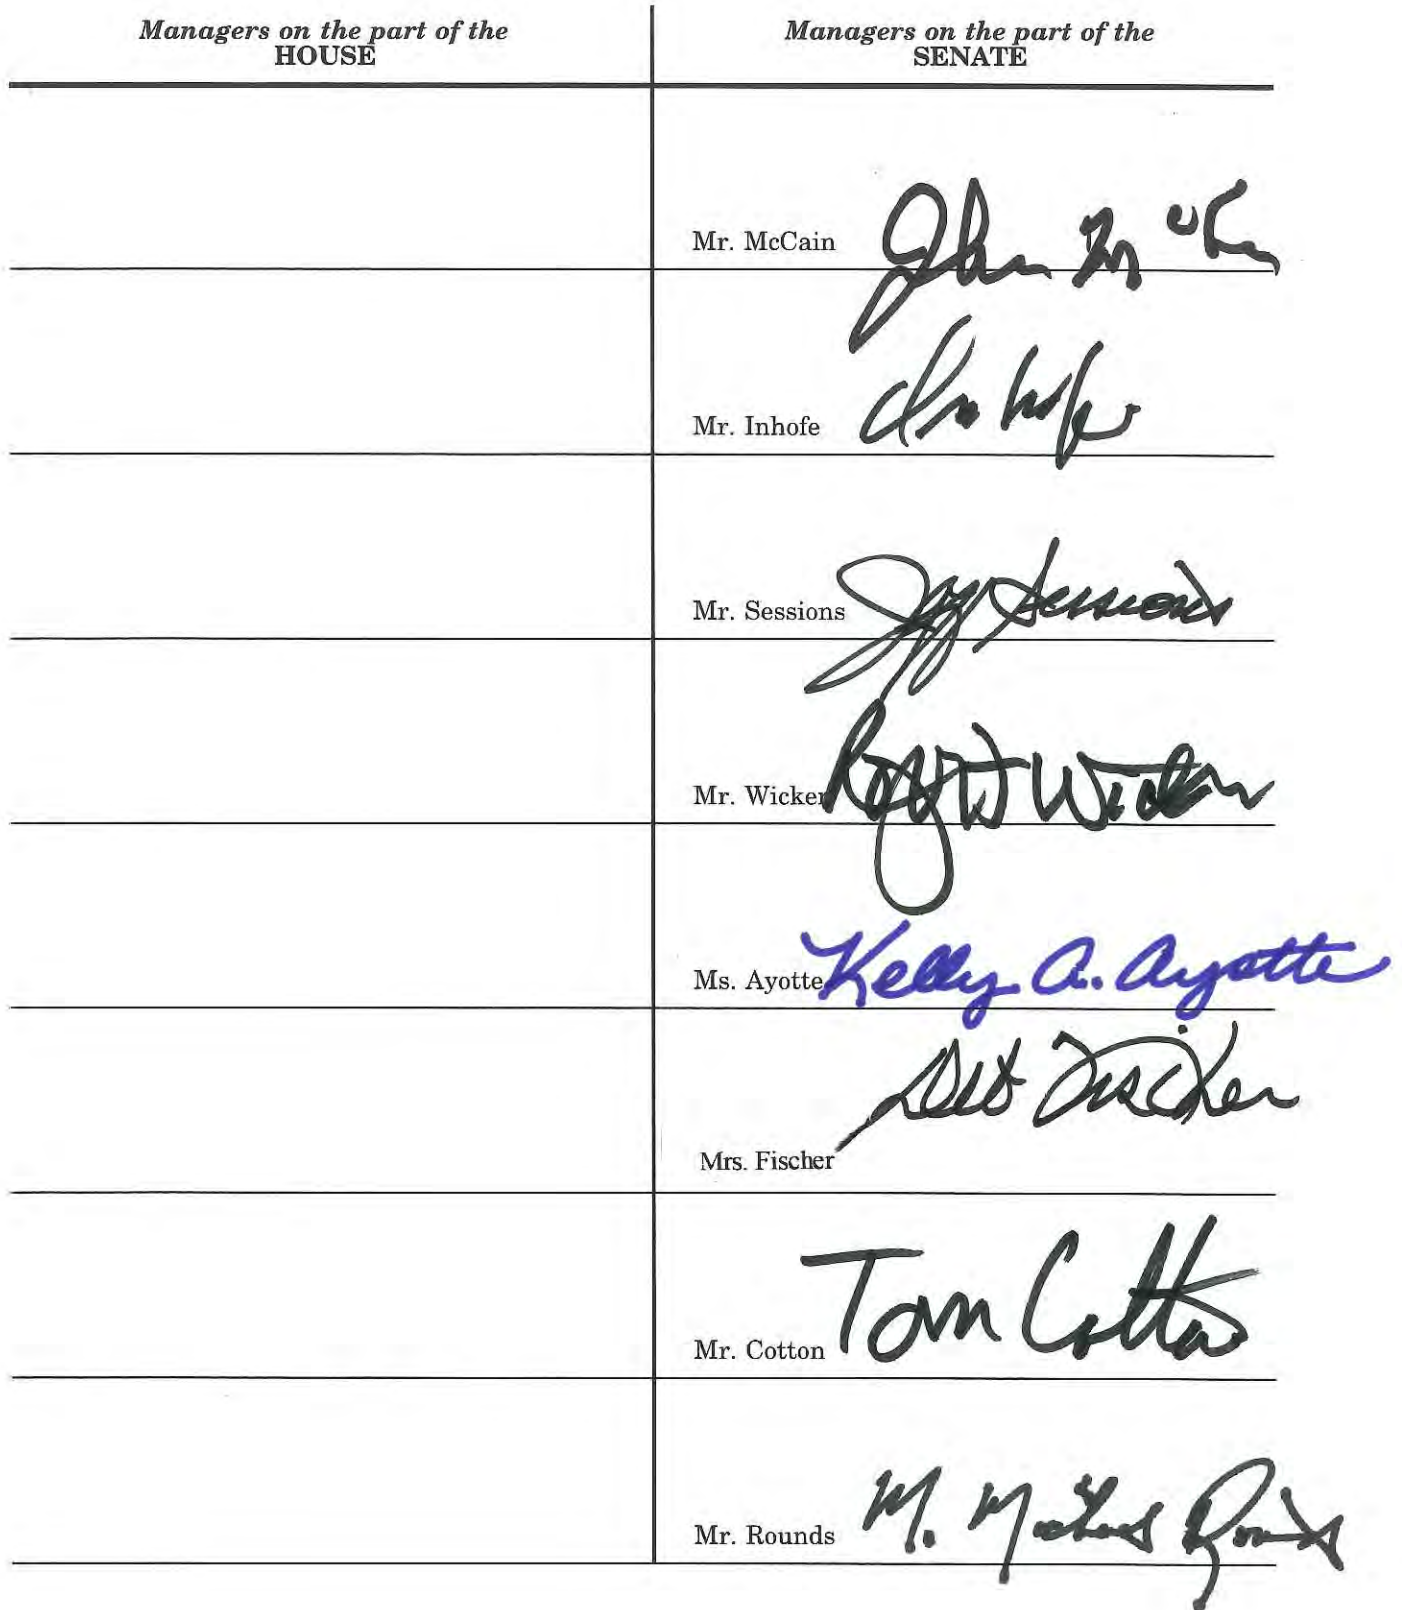 Managers on the part of the
HOUSE
Managers on the part of the
SENATE
Mr. McCain John McCain
Mr. Inhofe Inhofe
Mr. Sessions Jeff Sessions
Mr. Wicker Roger Wicker
Ms. Ayotte Kelly A. Ayotte
Deb Fischer
Mrs. Fischer
Mr. Cotton Tom Cotton
Mr. Rounds M. Michael Rounds